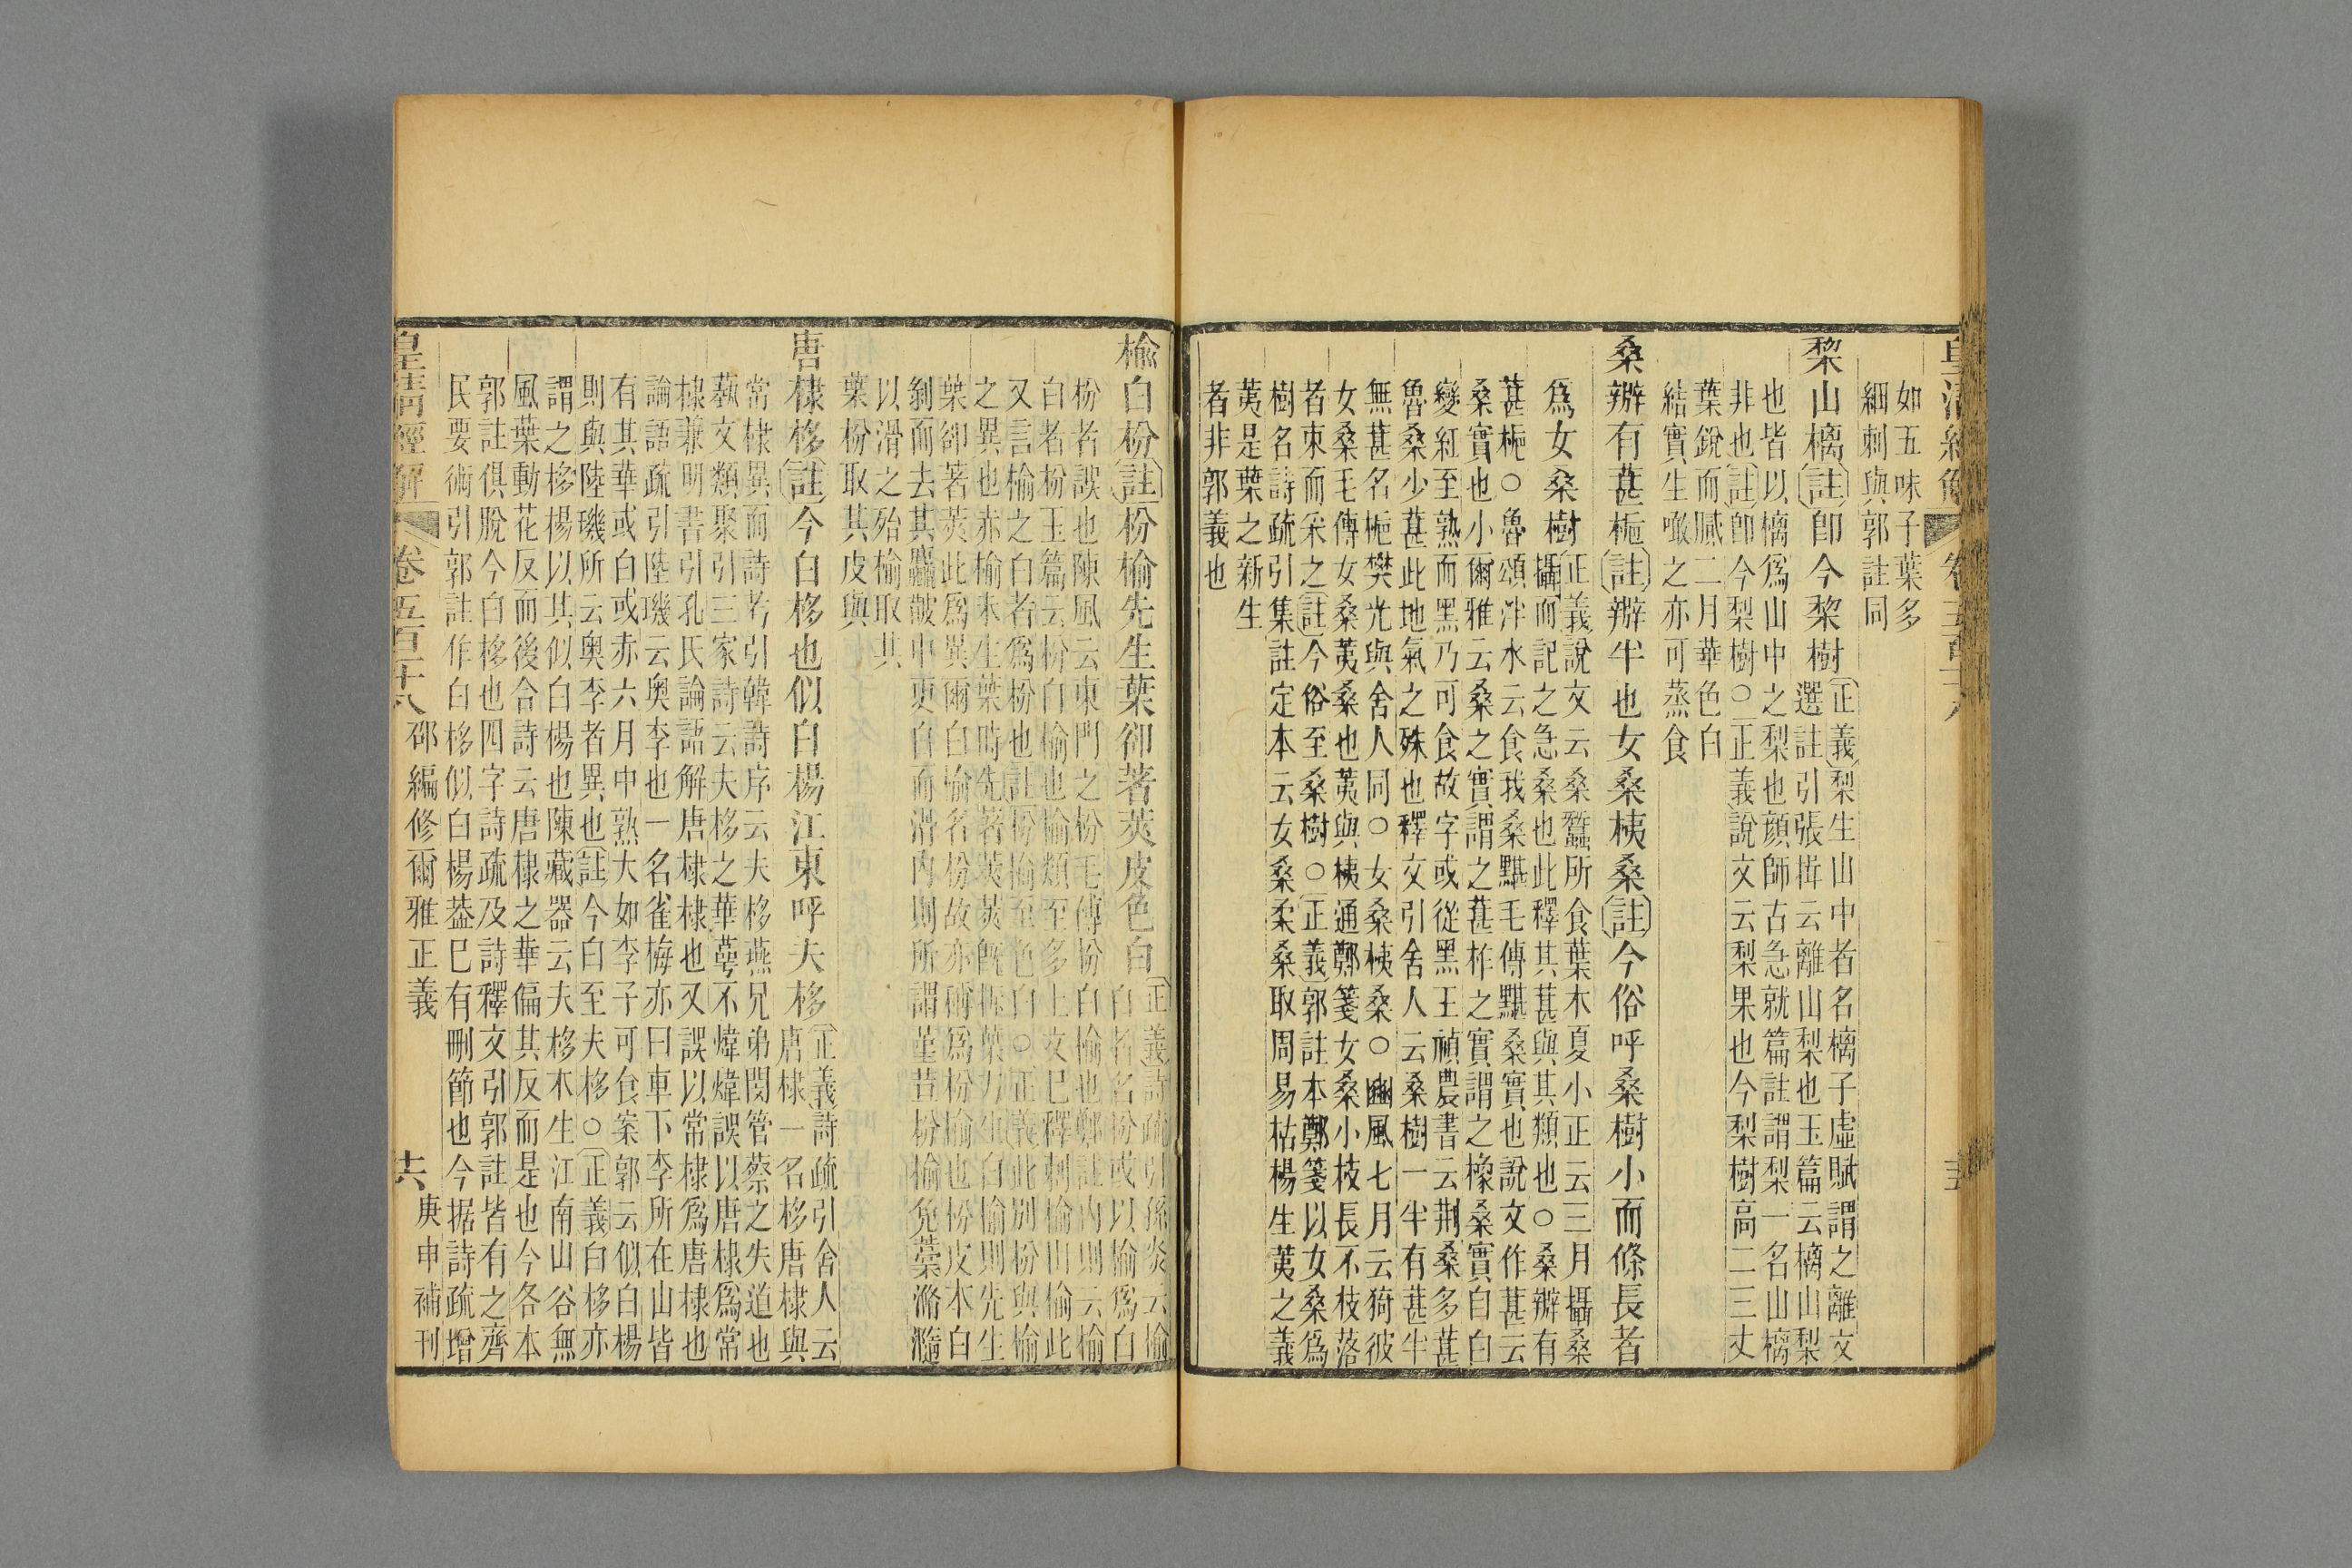 如五味子葉多
細刺與郭註同
棃山樆註卽今棃樹正義梨生山中者名樆子虛賦謂之離文
選註引張揖云離山梨也玉篇云樆山梨
也皆以樆爲山中之梨也顏師古急就篇註謂梨一名山樆
非也註卽今梨樹○正義說文云梨果也今梨樹高二三丈
葉銳而膩二月華色白
結實生噉之亦可蒸食
桑辦有葚梔註辦半也女桑桋桑註今俗呼桑樹小而條長者
爲女桑樹正義說文云桑蠶所食葉木夏小正云三月攝桑
攝而記之急桑也此釋其葚與其類也○桑辦有
葚梔○魯頌泮水云食我桑黮毛傳黮桑實也說文作葚云
桑實也小爾雅云桑之實謂之葚柞之實謂之橡桑實自白
變紅至熟而黑乃可食故字或從黑王禎農書云荆桑多葚
魯桑少葚此地氣之殊也釋文引舍人云桑樹一半有葚半
無葚名梔樊光與舍人同○女桑桋桑○豳風七月云猗彼
女桑毛傳女桑荑桑也荑與桋通鄭箋女桑小枝長不枝落
者束而采之註今俗至桑樹○正義郭註本鄭箋以女桑爲
樹名詩疏引集註定本云女桑柔桑取周易枯楊生荑之義
荑是葉之新生
者非郭義也
榆白枌註枌榆先生葉卻著莢皮色白正義詩疏引孫炎云榆
白者名枌或以榆爲白
枌者誤也陳風云東門之枌毛傳枌白榆也鄭註內則云榆
白者枌玉篇云枌白榆也榆類至多上文已釋刺榆山榆此
又言榆之白者爲枌也註枌榆至色白○正義此別枌與榆
之異也赤榆木生葉時先著莢莢旣落葉乃生白榆則先生
葉卻著莢此爲異爾白榆名枌故亦稱爲枌榆也枌皮本白
剝而去其麤皵中更白而滑內則所謂堇荁枌榆免薧滫瀡
以滑之殆榆取其
葉枌取其皮與
唐棣栘註今白栘也似白楊江東呼夫栘正義詩疏引舍人云
唐棣一名栘唐棣與
常棣異而詩考引韓詩序云夫栘燕兄弟閔管蔡之失道也
蓺文類聚引三家詩云夫栘之華萼不煒煒誤以唐棣爲常
棣兼明書引孔氏論語解唐棣棣也又誤以常棣爲唐棣也
論語疏引陸璣云奧李也一名雀梅亦曰車下李所在山皆
有其華或白或赤六月中熟大如李子可食案郭云似白楊
則與陸璣所云奧李者異也註今白至夫栘○正義白栘亦
謂之栘楊以其似白楊也陳藏器云夫栘木生江南山谷無
風葉動花反而後合詩云唐棣之華偏其反而是也今各本
郭註俱脫今白栘也四字詩疏及詩釋文引郭註皆有之齊
民要術引郭註作白栘似白楊葢已有刪節也今据詩疏增
皇淸經解 卷五百二十八 邵編修爾雅正義 十六 庚申補刊